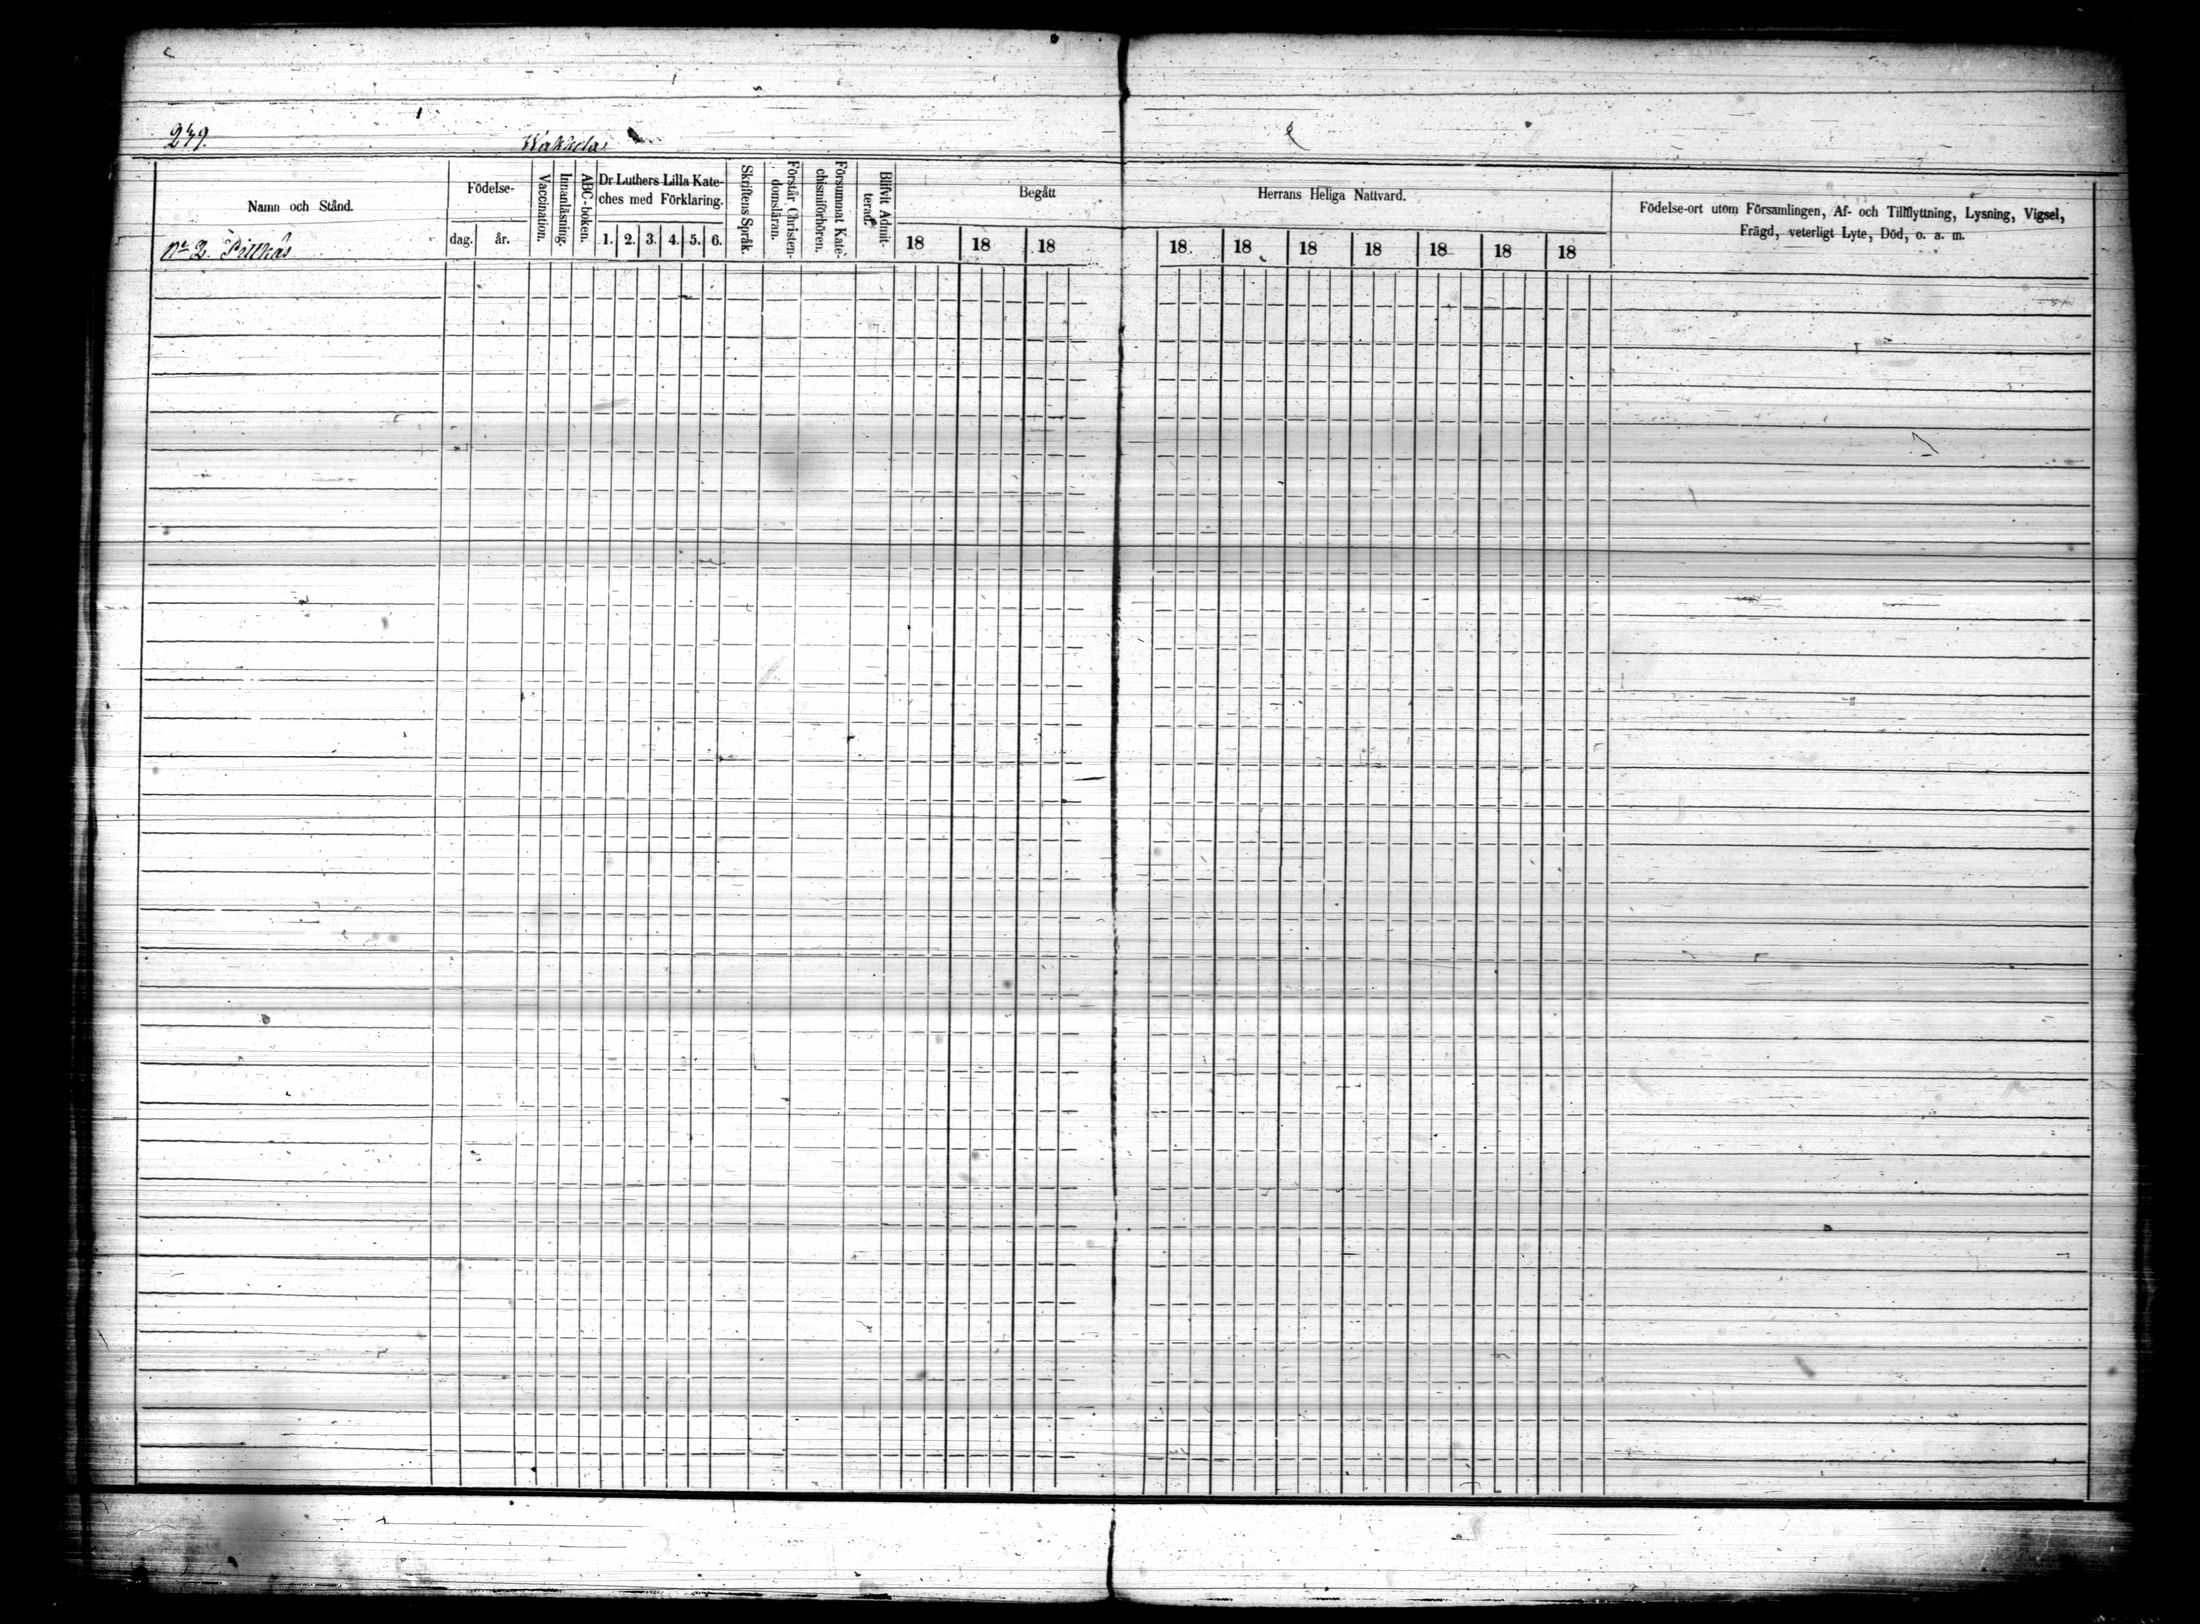 279.
Wakkola
Namn och Stånd.
Födelse-
dag.
år.
Vaccination.
Innanläsning.
ABC-boken.
Dr Luthers Lilla Kate-
ches med Förklaring.
1. 2. 3. 4. 5. 6.
Skriftens Språk.
Förstår Christen-
domsläran.
Försummat Kate-
chismiförhören.
Blifvit Admit-
terad.
Begått
18 18 18
Herrans Heliga Nattvard.
18 18 18 18 18 18 18
Födelse-ort utom Församlingen, Af- och Tillflyttning, Lysning, Vigsel,
Frägd, veterligt Lyte, Död, o. a. m.
No 2. Pitkäs